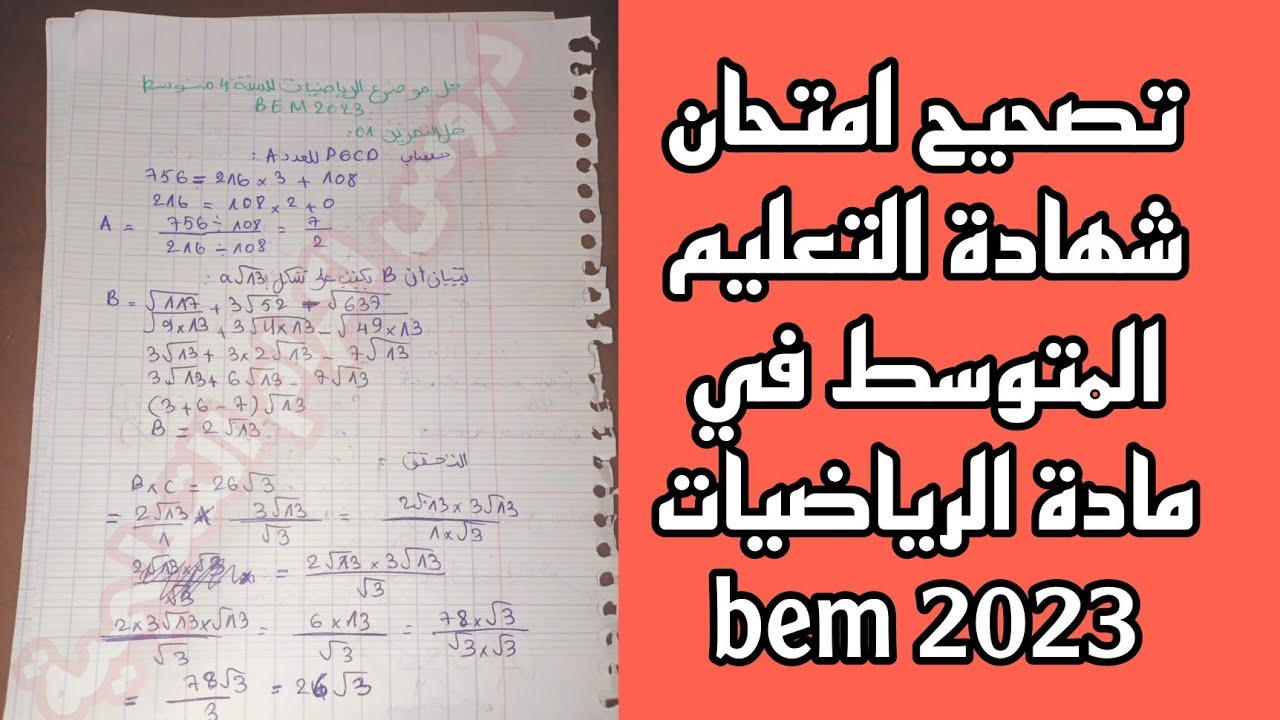 حل موضوع الرياضيات للسنة 4 متوسط
BEM 2023.
حل التمرين 01:
حساب PGCD للعدد A:
756 = 216 × 3 + 108
216 = 108 × 2 + 0
A = 756 ÷ 108 / 216 ÷ 108 = 7 / 2
تبيان أن B يكتب على شكل a√13:
B = √117 + 3√52 - √637
√9×13 + 3√4×13 - √49×13
3√13 + 3×2√13 - 7√13
3√13 + 6√13 - 7√13
(3+6-7)√13
B = 2√13.
التحقق:
B×C = 26√3
= 2√13 / 1 × 3√13 / √3 = 2√13 × 3√13 / 1×√3
= 2√13 × 3√13 / √3
2×3√13×√13 / √3 = 6×13 / √3 = 78×√3 / √3×√3
= 78√3 / 3 = 26√3
تصحيح امتحان
شهادة التعليم
المتوسط في
مادة الرياضيات
bem 2023